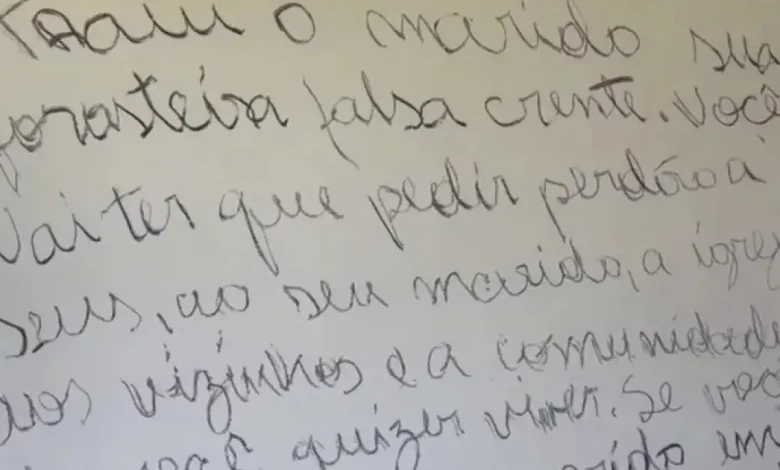 o marido sua
forasteira falsa crente. Você
vai ter que pedir perdão a
seus, ao seu marido, a igre
aos vizinhos e a comunidad
você quizer viver. Se você